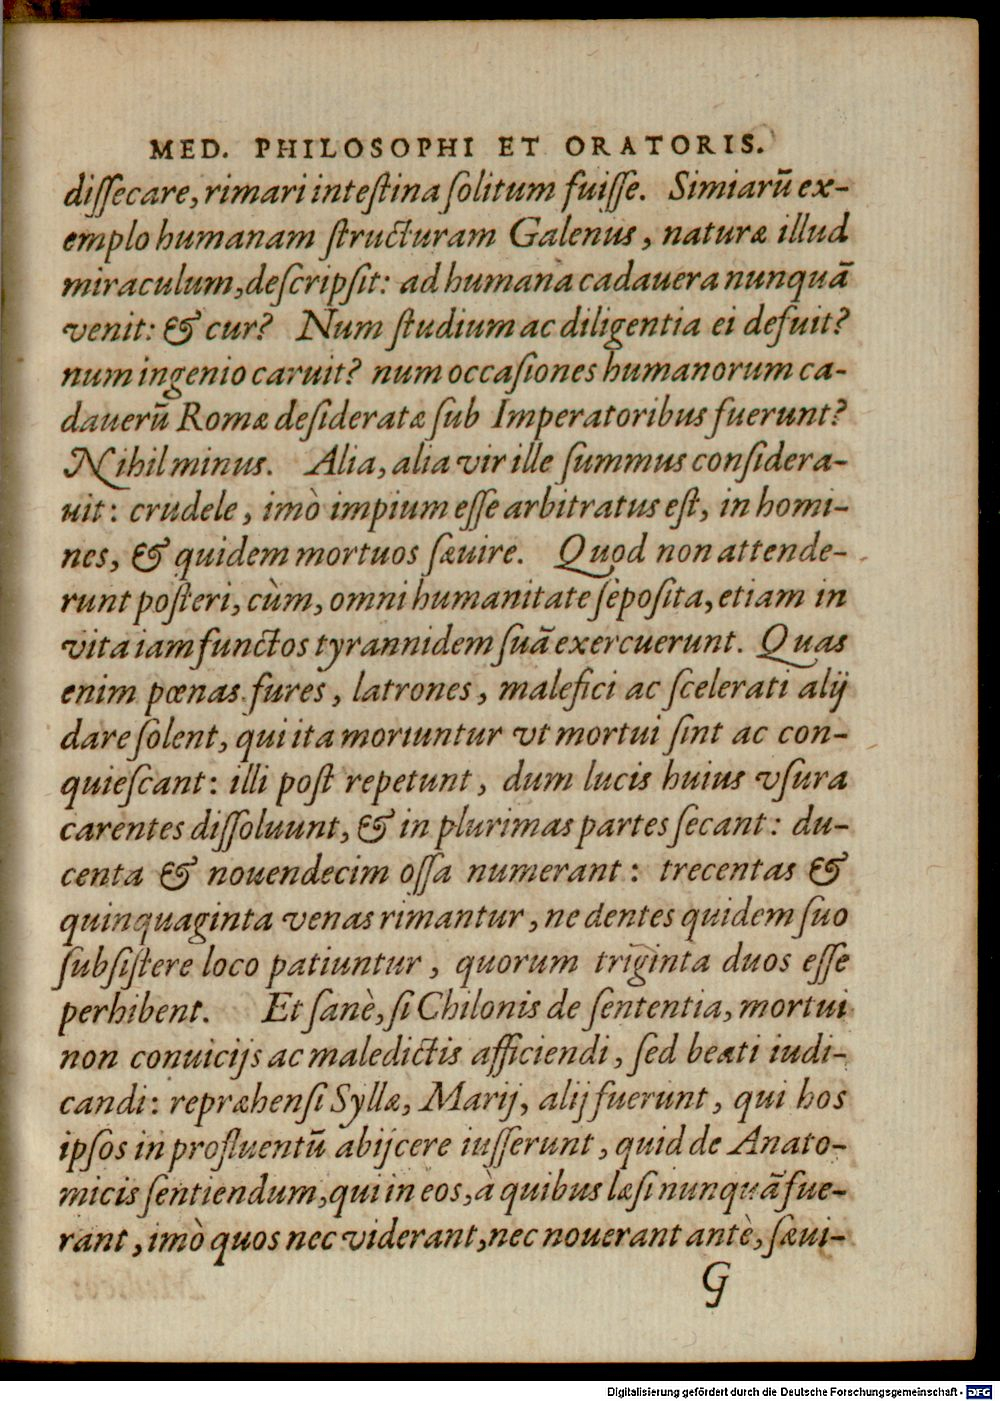 MED. PHILOSOPHI ET ORATORIS.
diſſecare, rimari inteſtina ſolitum fuiſſe. Simiarū ex-
emplo humanam ſtructuram Galenus, naturæ illud
miraculum, deſcripſit: ad humana cadauera nunquā
venit: & cur? Num ſtudium ac diligentia ei defuit?
num ingenio caruit? num occaſiones humanorum ca-
dauerū Romæ deſideratæ ſub Imperatoribus fuerunt?
Nihil minus. Alia, alia vir ille ſummus conſidera-
uit: crudele, imò impium eſſe arbitratus eſt, in homi-
nes, & quidem mortuos ſæuire. Quod non attende-
runt poſteri, cùm, omni humanitate ſepoſita, etiam in
vita iam functos tyrannidem ſuā exercuerunt. Quas
enim pœnas fures, latrones, malefici ac ſcelerati alij
dare ſolent, qui ita moriuntur vt mortui ſint ac con-
quieſcant: illi poſt repetunt, dum lucis huius vſura
carentes diſſoluunt, & in plurimas partes ſecant: du-
centa & nouendecim oſſa numerant: trecentas &
quinquaginta venas rimantur, ne dentes quidem ſuo
ſubſiſtere loco patiuntur, quorum triginta duos eſſe
perhibent. Et ſanè, ſi Chilonis de ſententia, mortui
non conuicijs ac maledictis afficiendi, ſed beati iudi-
candi: repræhenſi Syllæ, Marij, alij fuerunt, qui hos
ipſos in profluentū abijcere iuſſerunt, quid de Anato-
micis ſentiendum, qui in eos, à quibus læſi nunquā fue-
rant, imò quos nec viderant, nec nouerant antè, ſæui-
G
Digitalisierung gefördert durch die Deutsche Forschungsgemeinschaft - DFG